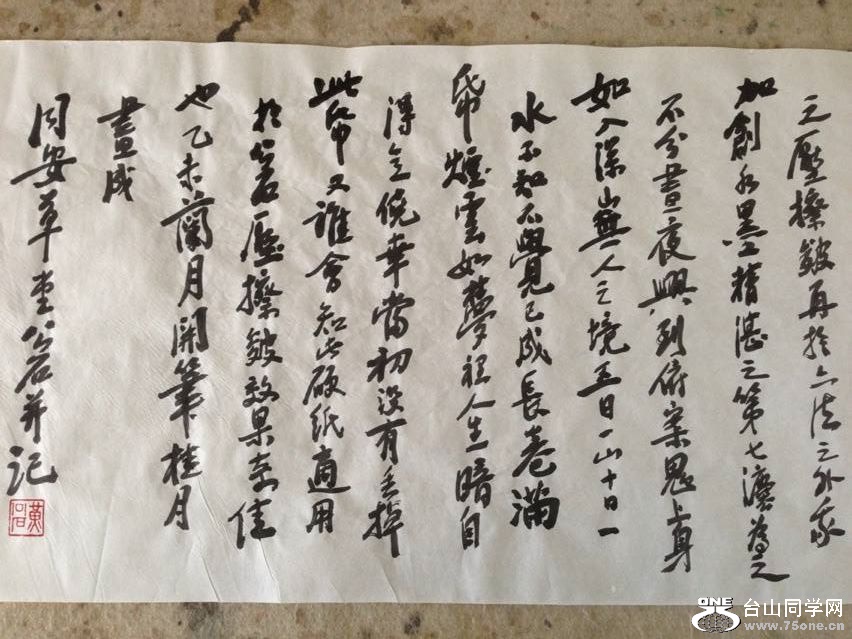 之壓擦皴再於六法之外最
加創水墨精湛之第七瀍為之
不分晝夜興到俯案思上身
如入深山無人之境五日一山十日一
水不知不覺已成長卷滿
帋煙雲如夢裡人生暗自
得意僥幸當初沒有丟掉
此帋又誰會知此破紙適用
於公若壓擦皴效果奇佳
也乙未蘭月開筆桂月
畫成
同安草堂公若并記
黄
ONE
台山同学网
www.75one.cn